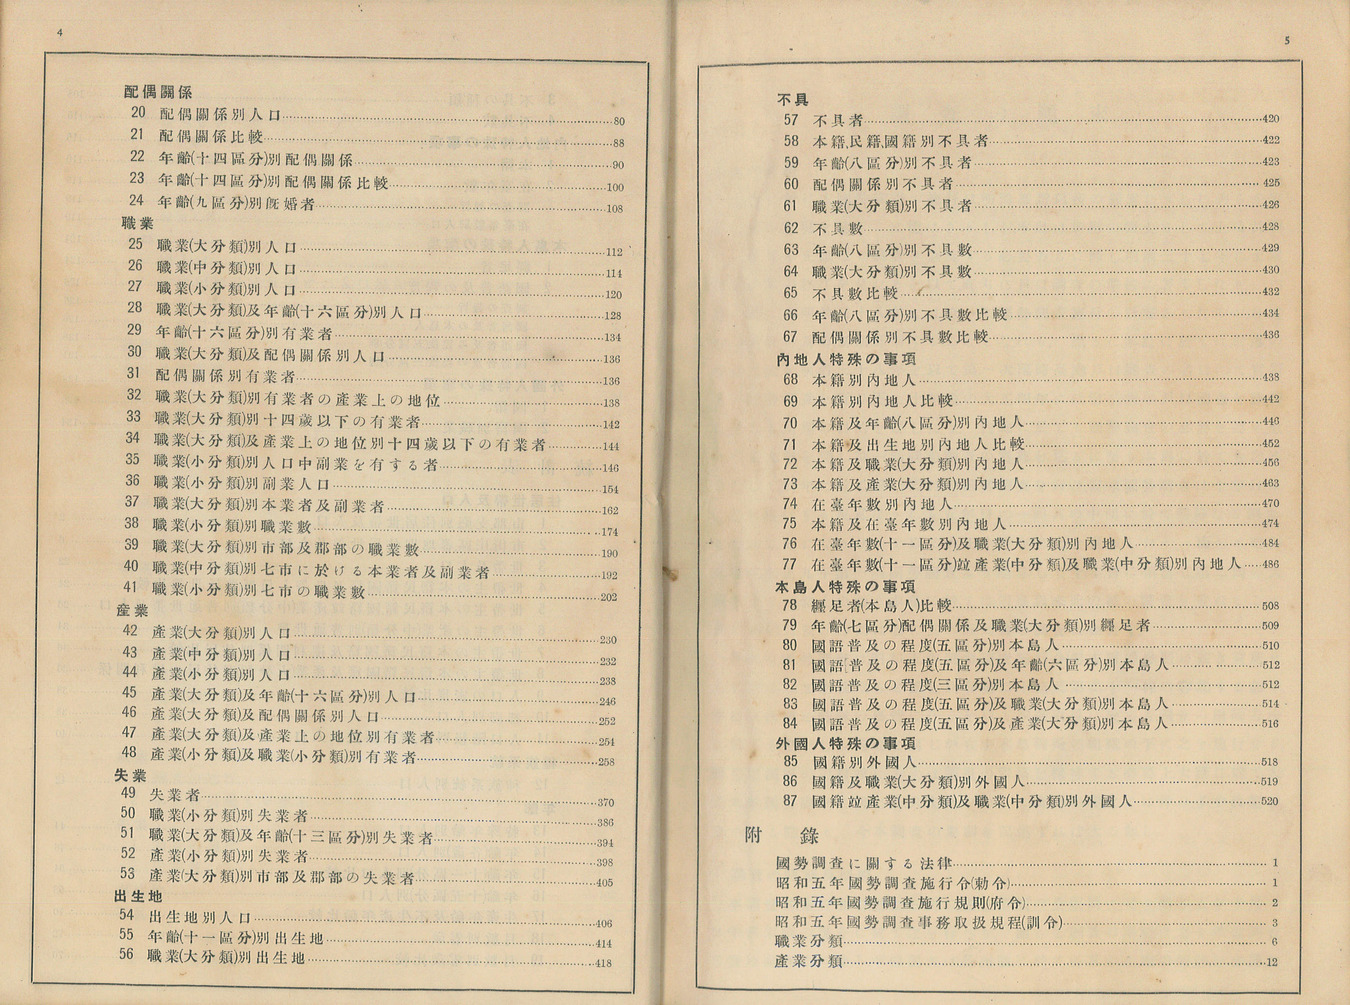 4
配偶關係
20 配偶關係別人口 80
21 配偶關係比較 88
22 年齡(十四區分)別配偶關係 90
23 年齡(十四區分)別配偶關係比較 100
24 年齡(九區分)別旣婚者 108
職業
25 職業(大分類)別人口 112
26 職業(中分類)別人口 114
27 職業(小分類)別人口 120
28 職業(大分類)及年齡(十六區分)別人口 128
29 年齡(十六區分)別有業者 134
30 職業(大分類)及配偶關係別人口 136
31 配偶關係別有業者 136
32 職業(大分類)別有業者の產業上の地位 138
33 職業(大分類)別十四歲以下の有業者 142
34 職業(大分類)及產業上の地位別十四歲以下の有業者 144
35 職業(小分類)別人口中副業を有する者 146
36 職業(小分類)別副業人口 154
37 職業(大分類)別本業者及副業者 162
38 職業(小分類)別職業數 174
39 職業(大分類)別市部及郡部の職業數 190
40 職業(中分類)別七市に於ける本業者及副業者 192
41 職業(小分類)別七市の職業數 202
産業
42 產業(大分類)別人口 230
43 產業(中分類)別人口 232
44 產業(小分類)別人口 238
45 產業(大分類)及年齡(十六區分)別人口 246
46 產業(大分類)及配偶關係別人口 252
47 產業(大分類)及產業上の地位別有業者 254
48 產業(小分類)及職業(小分類)別有業者 258
失業
49 失業者 370
50 職業(小分類)別失業者 386
51 職業(大分類)及年齡(十三區分)別失業者 394
52 產業(小分類)別失業者 398
53 產業(大分類)別市部及郡部の失業者 405
出生地
54 出生地別人口 406
55 年齡(十一區分)別出生地 414
56 職業(大分類)別出生地 418
5
不具
57 不具者 420
58 本籍民籍國籍別不具者 422
59 年齡(八區分)別不具者 423
60 配偶關係別不具者 425
61 職業(大分類)別不具者 426
62 不具數 428
63 年齡(八區分)別不具數 429
64 職業(大分類)別不具數 430
65 不具數比較 432
66 年齡(八區分)別不具數比較 434
67 配偶關係別不具數比較 436
內地人特殊の事項
68 本籍別內地人 438
69 本籍別內地人比較 442
70 本籍及年齡(八區分)別內地人 446
71 本籍及出生地別內地人比較 452
72 本籍及職業(大分類)別內地人 456
73 本籍及產業(大分類)別內地人 463
74 在臺年數別內地人 470
75 本籍及在臺年數別內地人 474
76 在臺年數(十一區分)及職業(大分類)別內地人 484
77 在臺年數(十一區分)竝產業(中分類)及職業(中分類)別內地人 486
本島人特殊の事項
78 纒足者(本島人)比較 508
79 年齡(七區分)配偶關係及職業(大分類)別纒足者 509
80 國語普及の程度(五區分)別本島人 510
81 國語普及の程度(五區分)及年齡(六區分)別本島人 512
82 國語普及の程度(三區分)別本島人 512
83 國語普及の程度(五區分)及職業(大分類)別本島人 514
84 國語普及の程度(五區分)及產業(大分類)別本島人 516
外國人特殊の事項
85 國籍別外國人 518
86 國籍及職業(大分類)別外國人 519
87 國籍竝產業(中分類)及職業(中分類)別外國人 520
附錄
國勢調查に關する法律 1
昭和五年國勢調查施行令(勅令) 1
昭和五年國勢調查施行規則(府令) 2
昭和五年國勢調查事務取扱規程(訓令) 3
職業分類 6
產業分類 12